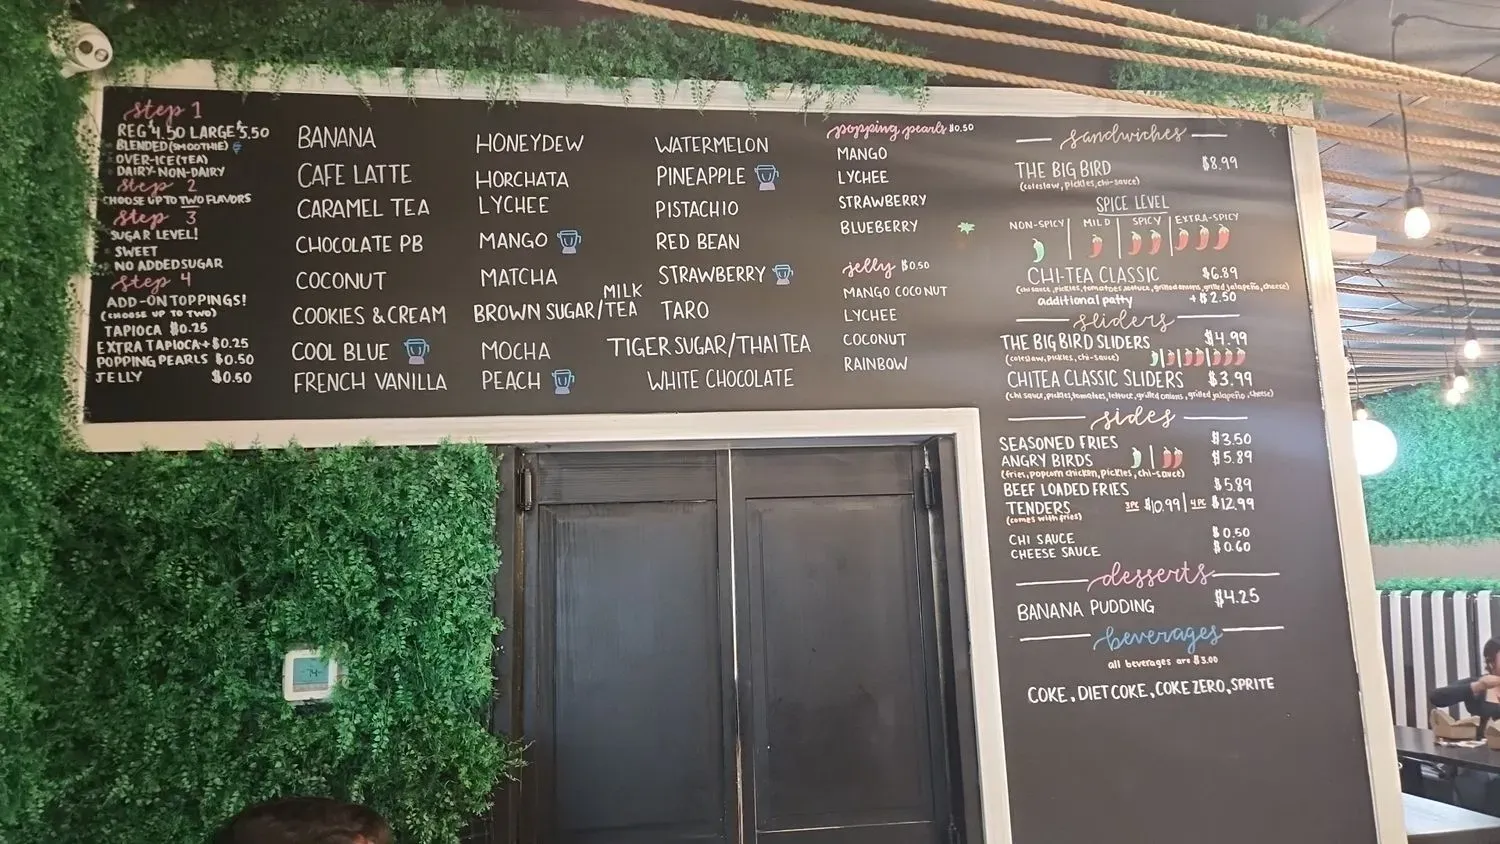 step 1
REG $4.50 LARGE $5.50
BLENDED (SMOOTHIE)
OVER-ICE (TEA)
DAIRY-NON-DAIRY
step 2
CHOOSE UP TO TWO FLAVORS
step 3
SUGAR LEVEL!
SWEET
NO ADDED SUGAR
step 4
ADD-ON TOPPINGS!
(CHOOSE UP TO TWO)
TAPIOCA $0.25
EXTRA TAPIOCA +$0.25
POPPING PEARLS $0.50
JELLY $0.50
BANANA
CAFE LATTE
CARAMEL TEA
CHOCOLATE PB
COCONUT
COOKIES & CREAM
COOL BLUE
FRENCH VANILLA
HONEYDEW
HORCHATA
LYCHEE
MANGO
MATCHA
BROWN SUGAR/MILK TEA
MOCHA
PEACH
WATERMELON
PINEAPPLE
PISTACHIO
RED BEAN
STRAWBERRY
TARO
TIGER SUGAR/THAI TEA
WHITE CHOCOLATE
popping pearls $0.50
MANGO
LYCHEE
STRAWBERRY
BLUEBERRY
jelly $0.50
MANGO COCONUT
LYCHEE
COCONUT
RAINBOW
sandwiches
THE BIG BIRD $8.99
(coleslaw, pickles, chi-sauce)
SPICE LEVEL
NON-SPICY MILD SPICY EXTRA-SPICY
CHI-TEA CLASSIC $6.89
(chi sauce, pickles, tomatoes, lettuce, grilled onions, grilled jalapeño, cheese)
additional patty +$2.50
sliders
THE BIG BIRD SLIDERS $4.99
(coleslaw, pickles, chi-sauce)
CHITEA CLASSIC SLIDERS $3.99
(chi sauce, pickles, tomatoes, lettuce, grilled onions, grilled jalapeño, cheese)
sides
SEASONED FRIES $3.50
ANGRY BIRDS $5.89
(fries, popcorn chicken, pickles, chi-sauce)
BEEF LOADED FRIES $5.89
TENDERS 3PC $10.99 | 4PC $12.99
(comes with fries)
CHI SAUCE $0.50
CHEESE SAUCE $0.60
desserts
BANANA PUDDING $4.25
beverages
all beverages are $3.00
COKE, DIET COKE, COKE ZERO, SPRITE